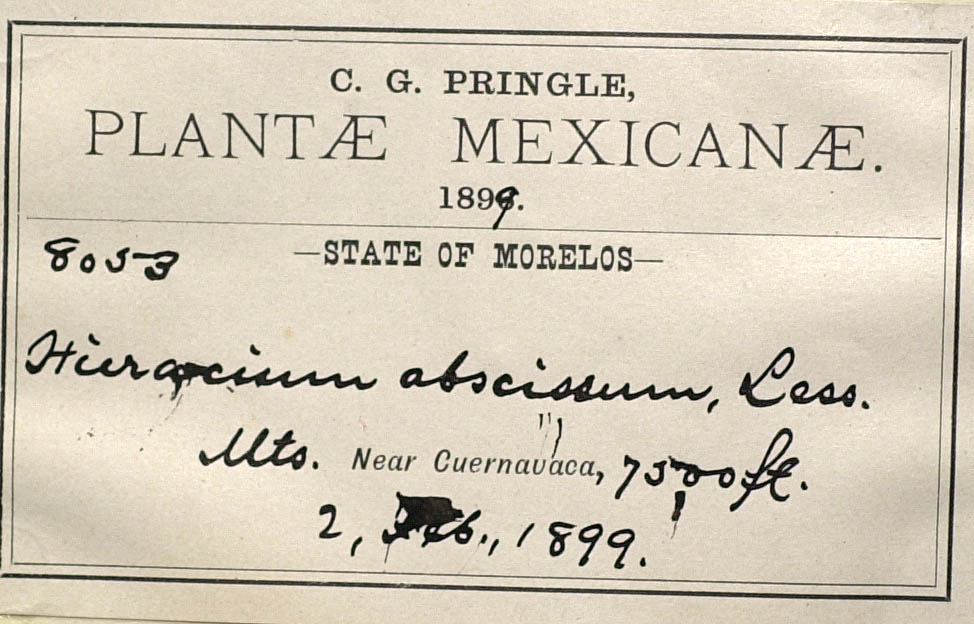 C. G. PRINGLE,
PLANTÆ MEXICANÆ.
1899.
8053 —STATE OF MORELOS—
Hieracium abscissum, Less.
Mts. Near Cuernavaca, 7500 ft.
2, Feb., 1899.